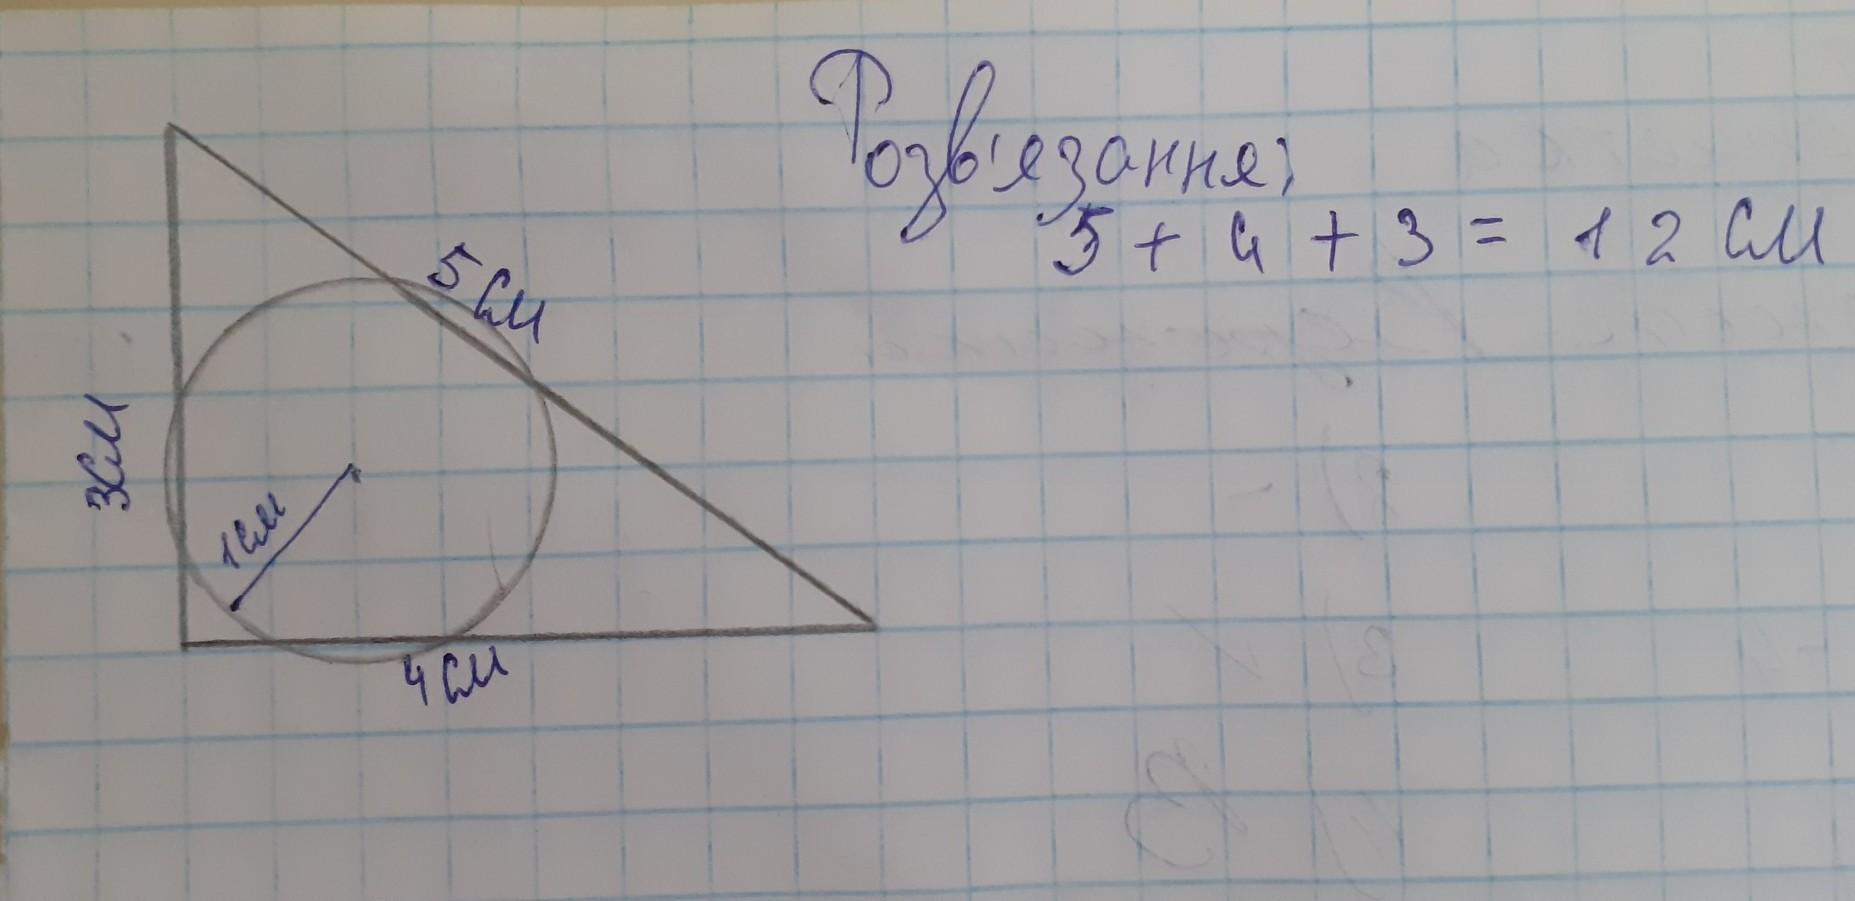 Розв'язання:
5 + 4 + 3 = 12 см
5 см
3 см
1 см
4 см